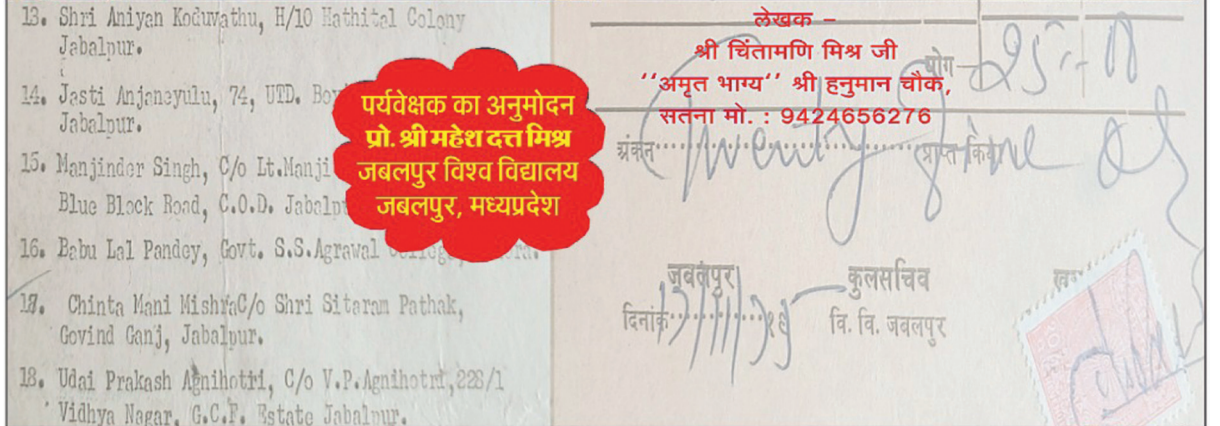 13. Shri Aniyan Koduvathu, H/10 Hathital Colony
Jabalpur.
14. Jasti Anjaneyulu, 74, UTD.
Jabalpur.
15. Manjinder Singh, C/o Lt.Manji
Blue Block Road, C.O.D. Jabalp
16. Babu Lal Pandey, Govt. S.S.Agrawal
17. Chinta Mani MishraC/o Shri Sitaram Pathak,
Govind Ganj, Jabalpur.
18. Udai Prakash Agnihotri, C/o V.P.Agnihotri,228/1
Vidhya Nagar, G.C.F. Estate Jabalpur.
पर्यवेक्षक का अनुमोदन
प्रो. श्री महेश दत्त मिश्र
जबलपुर विश्व विद्यालय
जबलपुर, मध्यप्रदेश
लेखक –
श्री चिंतामणि मिश्र जी
‘‘अमृत भाग्य‘‘ श्री हनुमान चौक,
सतना मो. : 9424656276
योग
अंकन Twenty five प्राप्त किये
जबलपुर
दिनांक
कुलसचिव
वि. वि. जबलपुर